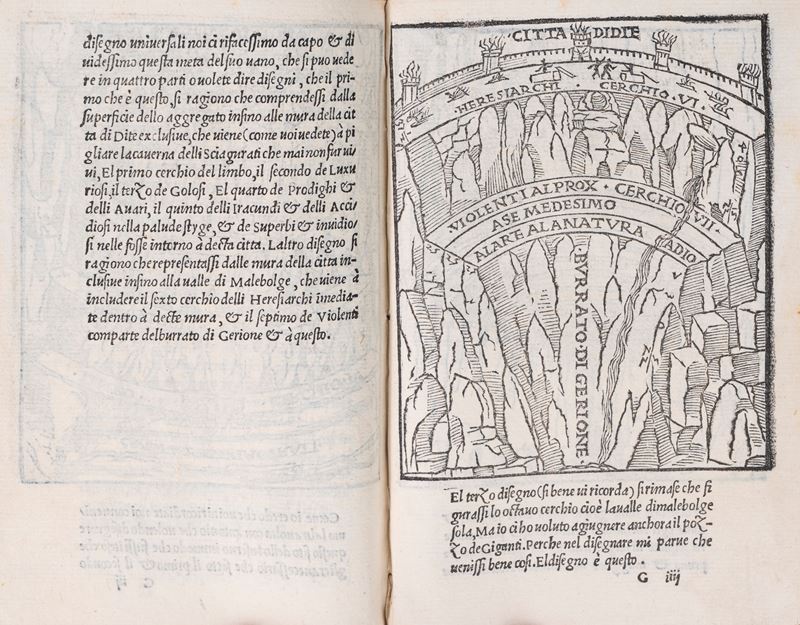 disegno universali noi ci rifacessimo da capo & di
videssimo questa meta del suo vano, che si puo vede
re in quattro parti o volete dire disegni, che il pri-
mo che è questo, si ragiono che comprendessi dalla
superficie dello aggregato insino alle mura della cit
ta di Dite exclusive, che viene (come voi vedete) à pi
gliare la caverna delli Sciagurati che mai non fur vi
vi, El primo cerchio del limbo, il secondo de Luxu
riosi, il terzo de Golosi, El quarto de Prodighi &
delli Avari, il quinto delli Iracundi & delli Acci
diosi nella palude styge, & de Superbi & invidio
si nelle fosse intorno à decta citta. Laltro disegno si
ragiono che representassi dalle mura della citta in-
clusive insino alla valle di Malebolge, che viene à
includere il sexto cerchio delli Heresiarchi imedia-
te dentro à decte mura, & il septimo de Violenti
comparte del burrato di Gerione & à questo.
CITTA DIDIE
HERESIARCHI · CERCHIO · VI ·
VIOLENTI ALPROX · CERCHIO VII ·
ASE MEDESIMO
ALARTE ALANATURA ADIO
BVRRATO · DI GERIONE ·
El terzo disegno (si bene vi ricorda) si rimase che fi
gurassi lo octavo cerchio cioè la valle di malebolge
sola, Ma io ci ho voluto agiugnere anchora il poz-
zo de Giganti. Perche nel disegnare mi parve che
venissi bene cosi. El disegno è questo.
G iiij